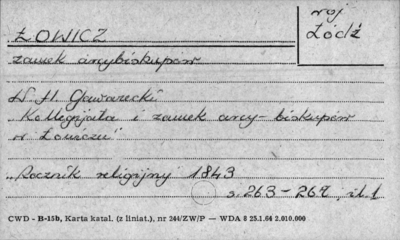 ŁOWICZ
woj
Łódź
zamek arcybiskupów
W. H. Gawarecki
"Kollegijata i zamek arcy-biskupów
w Łowiczu"
"Rocznik religijny 1843
s. 263-269, il. 1
CWD - B-15b, Karta katal. (z liniat.), nr 244/ZW/P — WDA 8 25.1.64 2.010.000